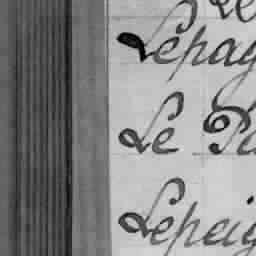 Lépag
Le Pa
Lepeig